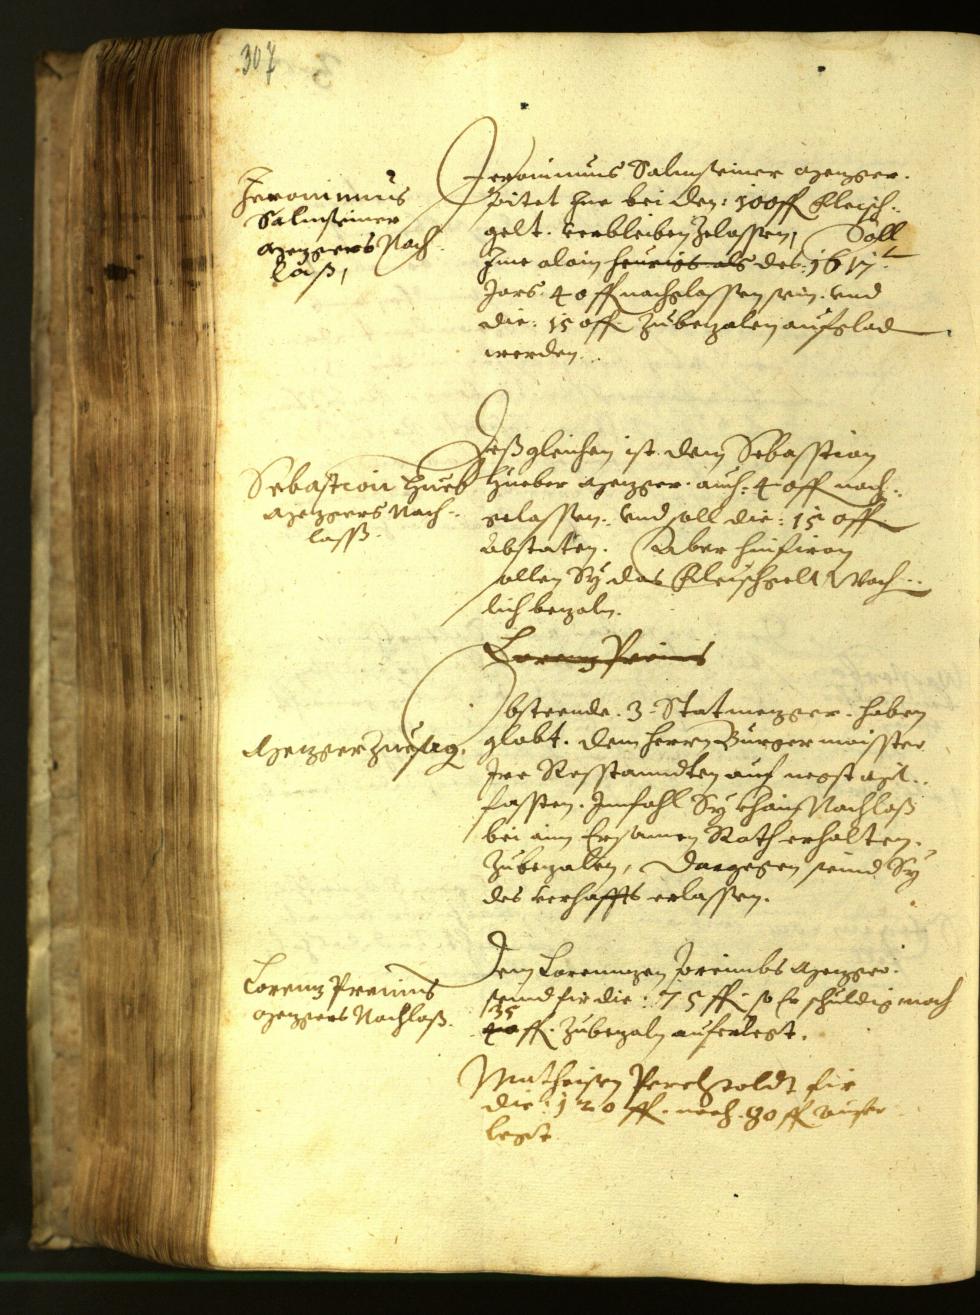 307
Jeronimus
Salmsteiner
Mezgers Nach
laß,
Jeronimus Salmsteiner Mezger.
pitet Ime bei den: 100 fl Fleisch
gelt. verbleiben zelassen, Soll
Ime alain heurigs als des: 1617.
Jars. 40 fl nachgelassen sein. vnd
die: 150 fl zubezalen aufgelad
werden.
Sebastion Hueb
Mezgers Nach
lass.
Deßgleichen ist dem Sebasstian
Hueber Mezger. auch: 40 fl nach
gelassen. vnd soll die: 150 fl.
Abstaten. Aber hinfiron
sollen Sy das Fleischgelt Woch
lich bezaln.
Lorenz Preims
Mezger Zuesag.
Obsteende. 3. Statmezger. haben
globt. dem Herrn Burgermaisster
Ire Resstanndten auf negst
fassten. Imfahl Sy khain Nachlaß
bei aim Ersamen Rath erhalten.
zubezalen, Dargegen seind Sy
des verhaffts erlassen.
Lorenz Preims
Mezgers Nachlaß.
Dem Lorennzen Mezger.
seind fir die: 75 fl. so Er schuldig noch
35
40 fl. zubezaln auferlegt.
Matheisen fir
die: 120 fl. noch. 80 fl aufer
legt